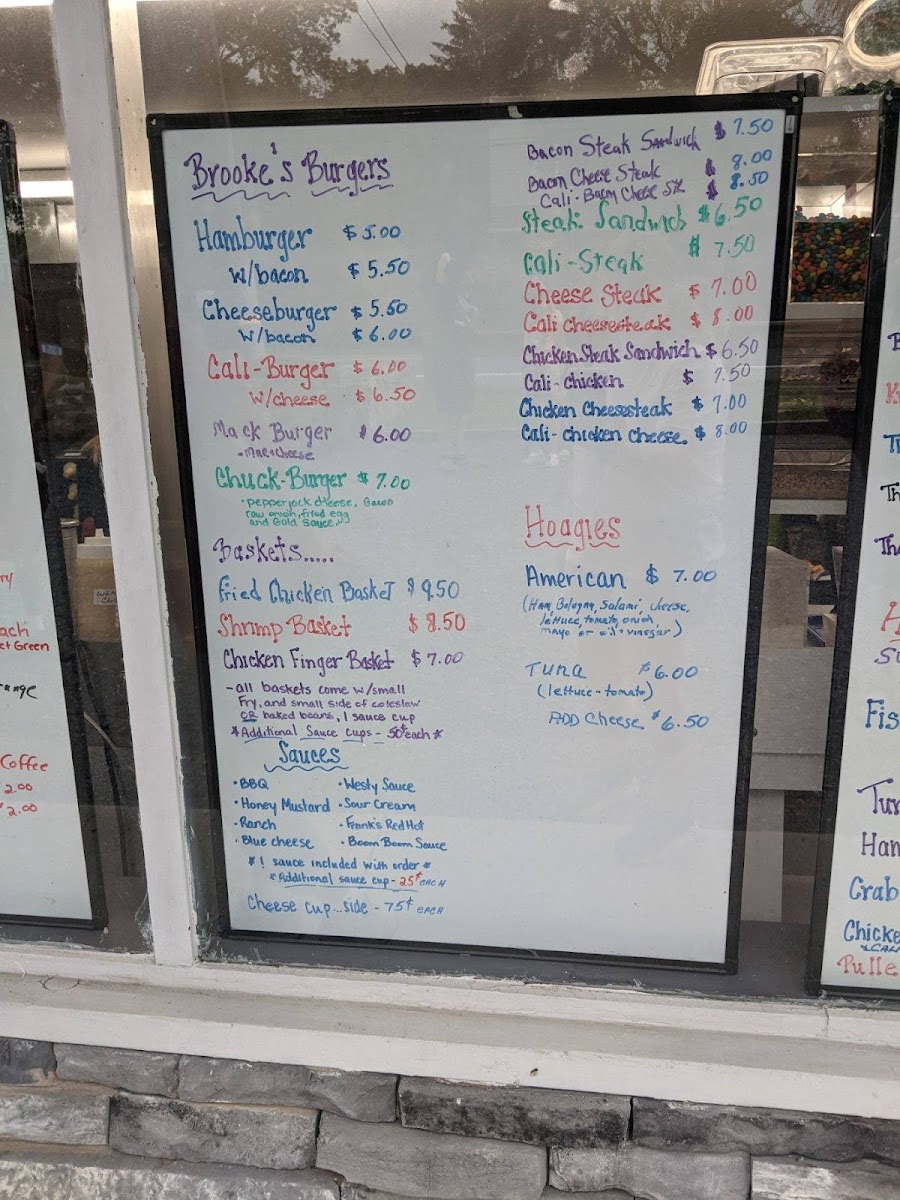 Brooke's Burgers
Hamburger $5.00
w/bacon $5.50
Cheeseburger $5.50
w/bacon $6.00
Cali-Burger $6.00
w/cheese $6.50
Mack Burger $6.00
• Mac+cheese
Chuck-Burger $7.00
• pepperjack cheese, Bacon
raw onion, fried egg
and Gold sauce
Baskets.....
Fried Chicken Basket $9.50
Shrimp Basket $8.50
Chicken Finger Basket $7.00
- all baskets come w/small
Fry, and small side of coleslaw
OR baked beans, 1 sauce cup
*Additional Sauce Cups - 50¢ each*
Sauces
• BBQ
• Honey Mustard
• Ranch
• Blue cheese
• Westy Sauce
• Sour Cream
• Frank's Red Hot
• Boom Boom Sauce
* 1 sauce included with order *
* Additional sauce cup - 25¢ each
Cheese cup...side - 75¢ each
Bacon Steak Sandwich $7.50
Bacon Cheese Steak $8.00
Cali-Bacon Cheese Stk $8.50
Steak Sandwich $6.50
Cali-Steak $7.50
Cheese Steak $7.00
Cali cheesesteak $8.00
Chicken Steak Sandwich $6.50
Cali-chicken $7.50
Chicken Cheesesteak $7.00
Cali-chicken cheese. $8.00
Hoagies
American $7.00
(Ham, Bologna, Salami, cheese,
lettuce, tomato, onion,
mayo or oil+vinegar)
Tuna $6.00
(lettuce-tomato)
ADD Cheese $6.50
Coffee
2.00
2.00
Crab